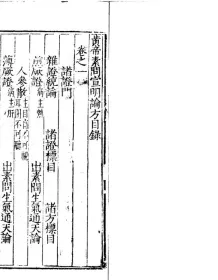 黃帝素問宣明論方目錄
卷之一
諸證門
雜證總論 諸證標目 諸方標目
煎厥證 病主怒 出素問生氣通天論
人參散
薄厥證 病主肝 出素問生氣通天論